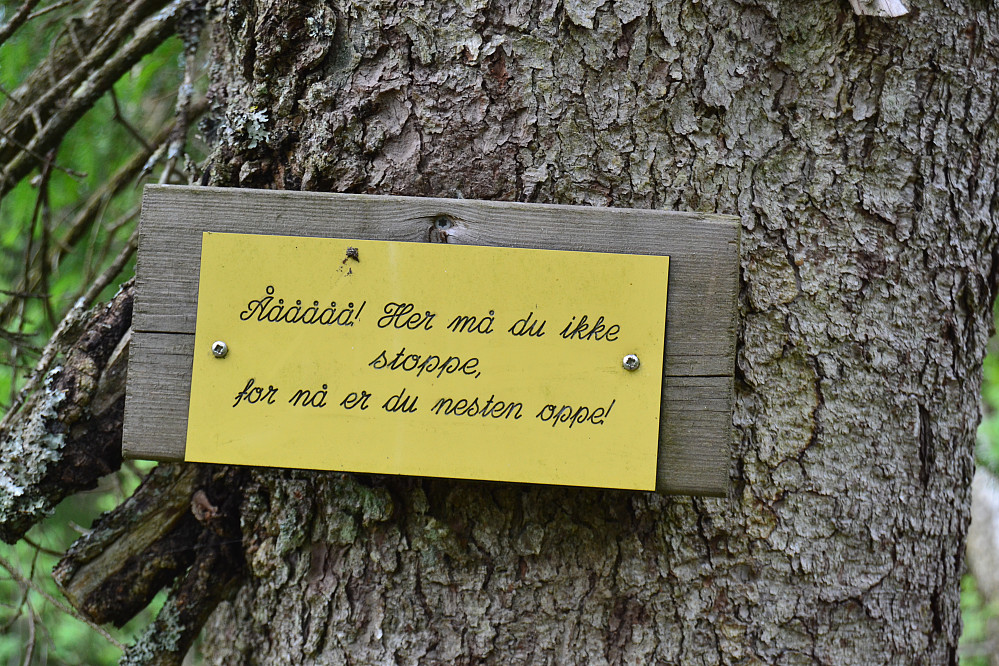 Åååååå! Her må du ikke
stoppe,
for nå er du nesten oppe!